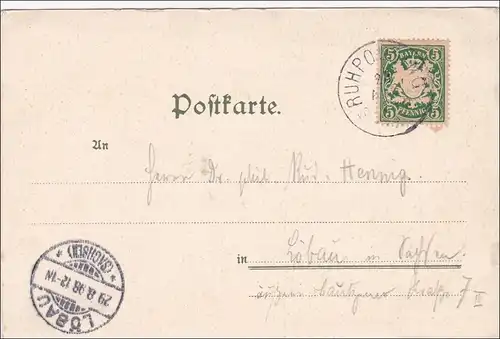 RUHPO
BAYERN
5 5
5 PFENNIG 5
Postkarte.
An
Herrn Dr. phil. Rud. Hennig.
in Löbau in Sachsen
äußere Bautzener Straße 7 II
LÖBAU * (SACHSEN) *
29 8 98 12-1N